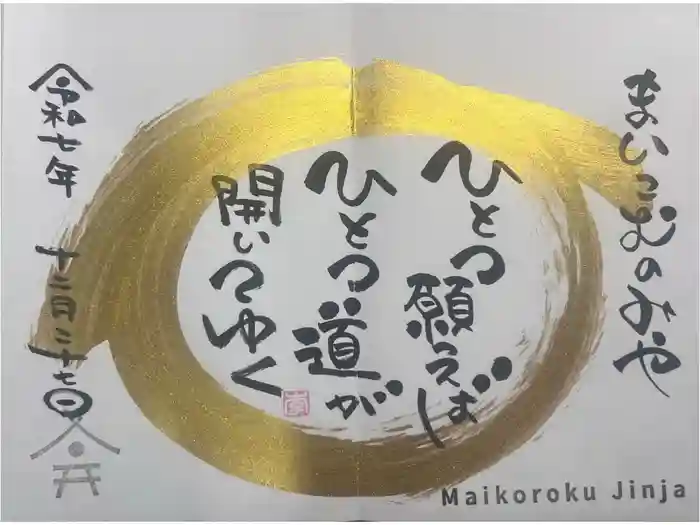 まいころのみや
ひとつ願えば
ひとつ道が
開いてゆく
令和七年
十二月二十七日
Maikoroku Jinja